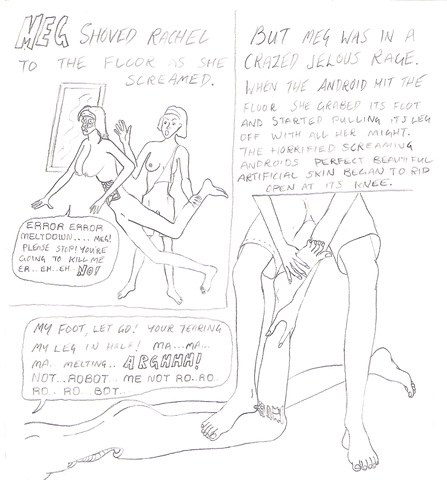 MEG SHOVED RACHEL
TO THE FLOOR AS SHE
SCREAMED.
ERROR ERROR
MELTDOWN.... MEG!
PLEASE STOP! YOU'RE
GOING TO KILL ME
ER..EH..EH. NO!
BUT MEG WAS IN A
CRAZED JELOUS RAGE.
WHEN THE ANDROID HIT THE
FLOOR SHE GRABED ITS FOOT
AND STARTED PULLING ITS LEG
OFF WITH ALL HER MIGHT.
THE HORRIFIED SCREAMING
ANDROIDS PERFECT BEAUTIFUL
ARTIFICIAL SKIN BEGAN TO RIP
OPEN AT ITS KNEE.
MY FOOT, LET GO! YOUR TEARING
MY LEG IN HALF! MA...MA...
MA. MELTING.. ARGHHH!
NOT...ROBOT.. ME NOT RO..RO..
RO.. RO. BOT...